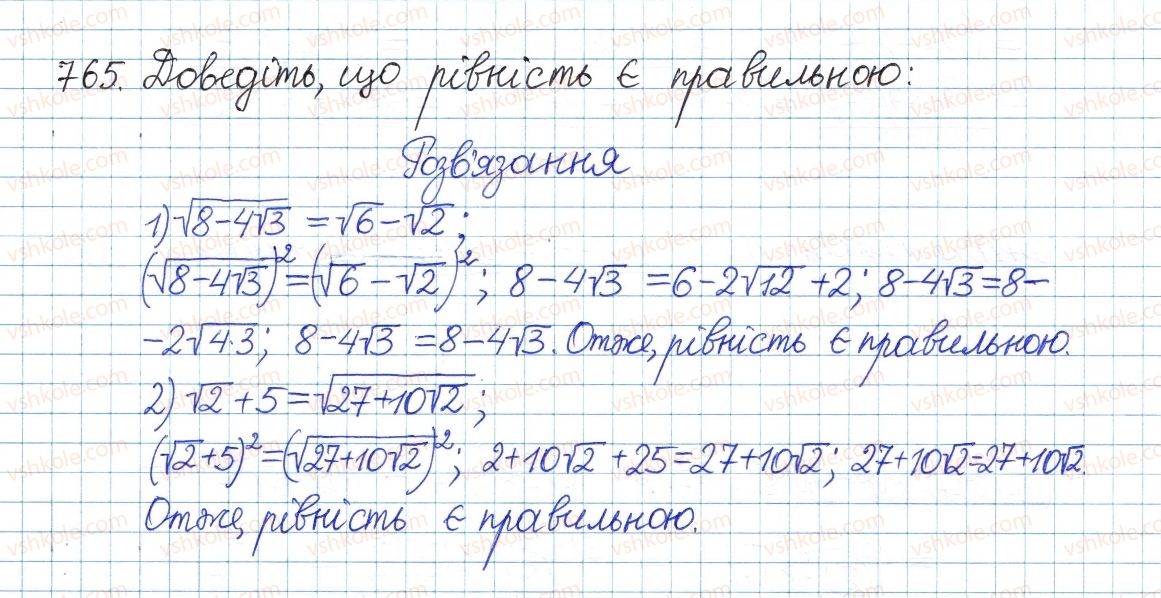 765. Доведіть, що рівність є правильною:
Розв'язання
1) √(8-4√3) = √6-√2;
(√(8-4√3))² = (√6-√2)²; 8-4√3 = 6-2√12+2; 8-4√3=8-
-2√(4·3); 8-4√3 = 8-4√3. Отже, рівність є правильною.
2) √2+5=√(27+10√2);
(√2+5)²=(√(27+10√2))²; 2+10√2+25=27+10√2; 27+10√2=27+10√2.
Отже, рівність є правильною.